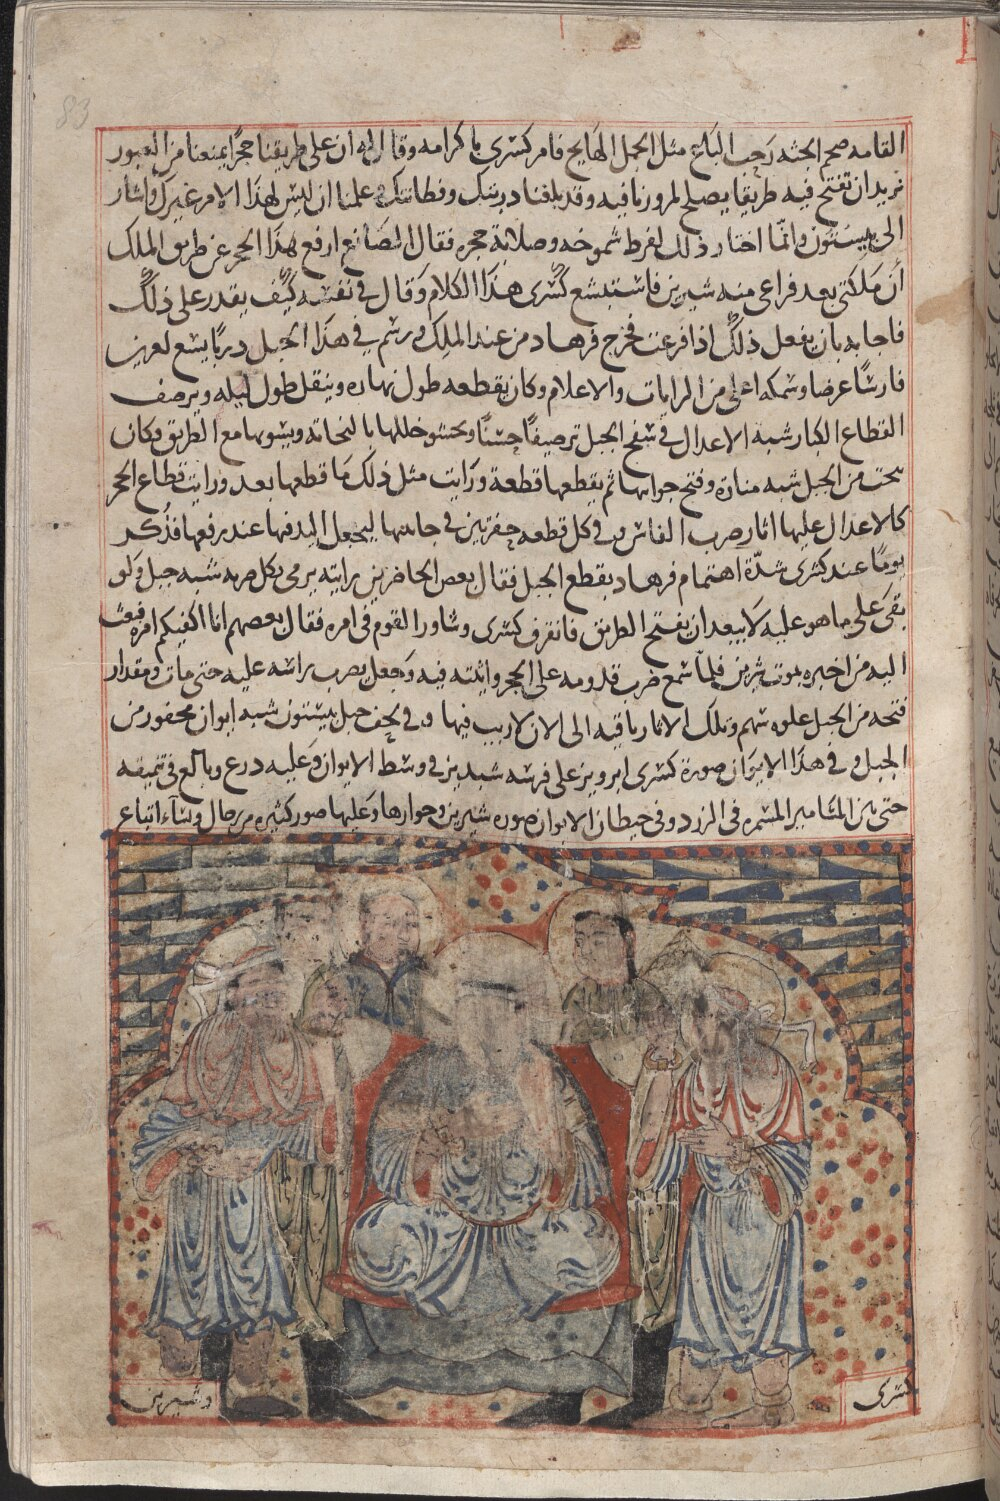 83
القامه ضخم الجثه رحب الباع مثل الجمل الهايج فامر كسرى باكرامه وقال له ان على طريقنا حجرا يمنعنا من العبور
نريد ان تفتح فيه طريقا يصلح لمرورنا فيه وقد بلغنا دربتك وفطانتك علمنا ان ليس لهذا الامر غيرك واشار
الى بيستون وانما اختار ذلك لفرط شموخه وصلابة حجره فقال الصانع ارفع هذا الحجر عن طريق الملك
ان ملكني بعد فراغي منه شيرين فاستبشع كسرى هذا الكلام وقال في نفسه كيف يقدر على ذلك
فاجابه بان يفعل ذلك اذا فرغت فخرج فرهاد من عند الملك ورسم في هذا الجبل دربا يسع لعرين
فارسا عرضا وسمكه اعلى من الرايات والاعلام وكان يقطعه طول نهاره وينقل طول ليله ويرصف
القطاع الكبار شبه الاعدال في سفح الجبل ترصيفا حسنا ويحشو خللها بالنحاته ويسويها مع الطريق وكان
ينحت من الجبل شبه مناره وفتح جوانبها ثم يقطعها قطعة ورايت مثل ذلك ما قطعها بعد ورايت قطاع الحجر
كالاعدال عليها اثار ضرب الفاس وفي كل قطعه حفرتين في جانبها ليجعل اليد فيها عند رفعها فذكر
يوما عند كسرى شدة اهتمام فرهاد بقطع الجبل فقال بعض الحاضرين رايته يرمي بكل ضربه شبه جبل ولو
بقى على ما هو عليه لا يبعد ان يفتح الطريق فانفرق كسرى وشاور القوم في امره فقال بعضهم انا اكفيكم امره فبعث
اليه من اخبره بموت شيرين فلما سمع ضرب قدومه على الحجر واثبته فيه وجعل يضرب براسه عليه حتى مات ومقدار
فتحه من الجبل علوه سهم وتلك الاثار باقيه الى الان لا ريب فيها وفي لحف جبل بيستون شبه ايوان محفور من
الجبل وفي هذا الايوان صورة كسرى ابرويز على فرسه شبديز في وسط الايوان وعليه درع وبالغ في تنميقه
حتى بين المسامير المسمره في الزرد وفي حيطان الايوان صوره شيرين وجوارها وعليها صور كثيره من رجال ونساء اتباع
كسرى
وشيرين